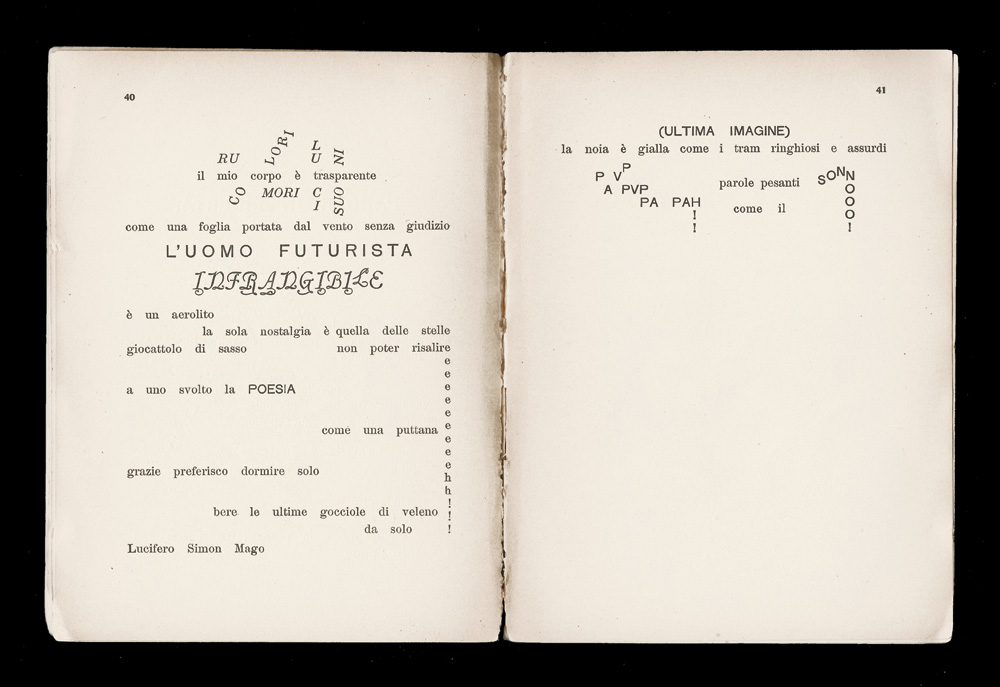 40
RU LORI LU NI
il mio corpo è trasparente
CO MORI CI SUO
come una foglia portata dal vento senza giudizio
L'UOMO FUTURISTA
INFRANGIBILE
è un aerolito
la sola nostalgia è quella delle stelle
giocattolo di sasso non poter risalire
e
e
e
a uno svolto la POESIA
e
e
e
come una puttana
e
e
e
grazie preferisco dormire solo
h
h
!
bere le ultime gocciole di veleno !
da solo !
Lucifero Simon Mago
41
(ULTIMA IMAGINE)
la noia è gialla come i tram ringhiosi e assurdi
P V P
A PVP
PA PAH
!
!
parole pesanti
come il
SONN
O
O
O
!